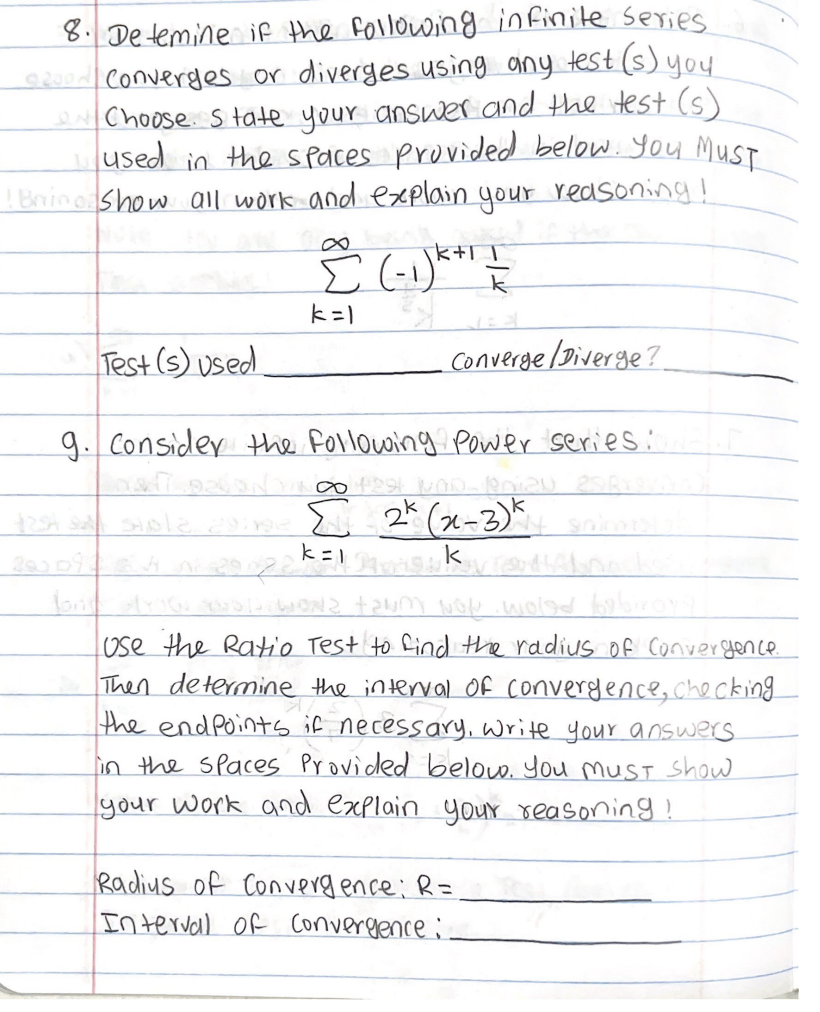 8. Detemine if the following infinite series
converges or diverges using any test(s) you
Choose. state your answer and the test (s)
used in the spaces provided below. You MUST
show all work and explain your reasoning!
∞
Σ (-1)^{k+1} 1/k
k=1
Test(s) Used ________ Converge/Diverge? ________
9. Consider the following power series:
∞
Σ 2^k (x-3)^k / k
k=1
Use the Ratio Test to find the radius of Convergence.
Then determine the interval of convergence, checking
the endpoints if necessary. Write your answers
in the spaces Provided below. You MUST show
your work and explain your reasoning!
Radius of Convergence: R= ________
Interval of Convergence: ________